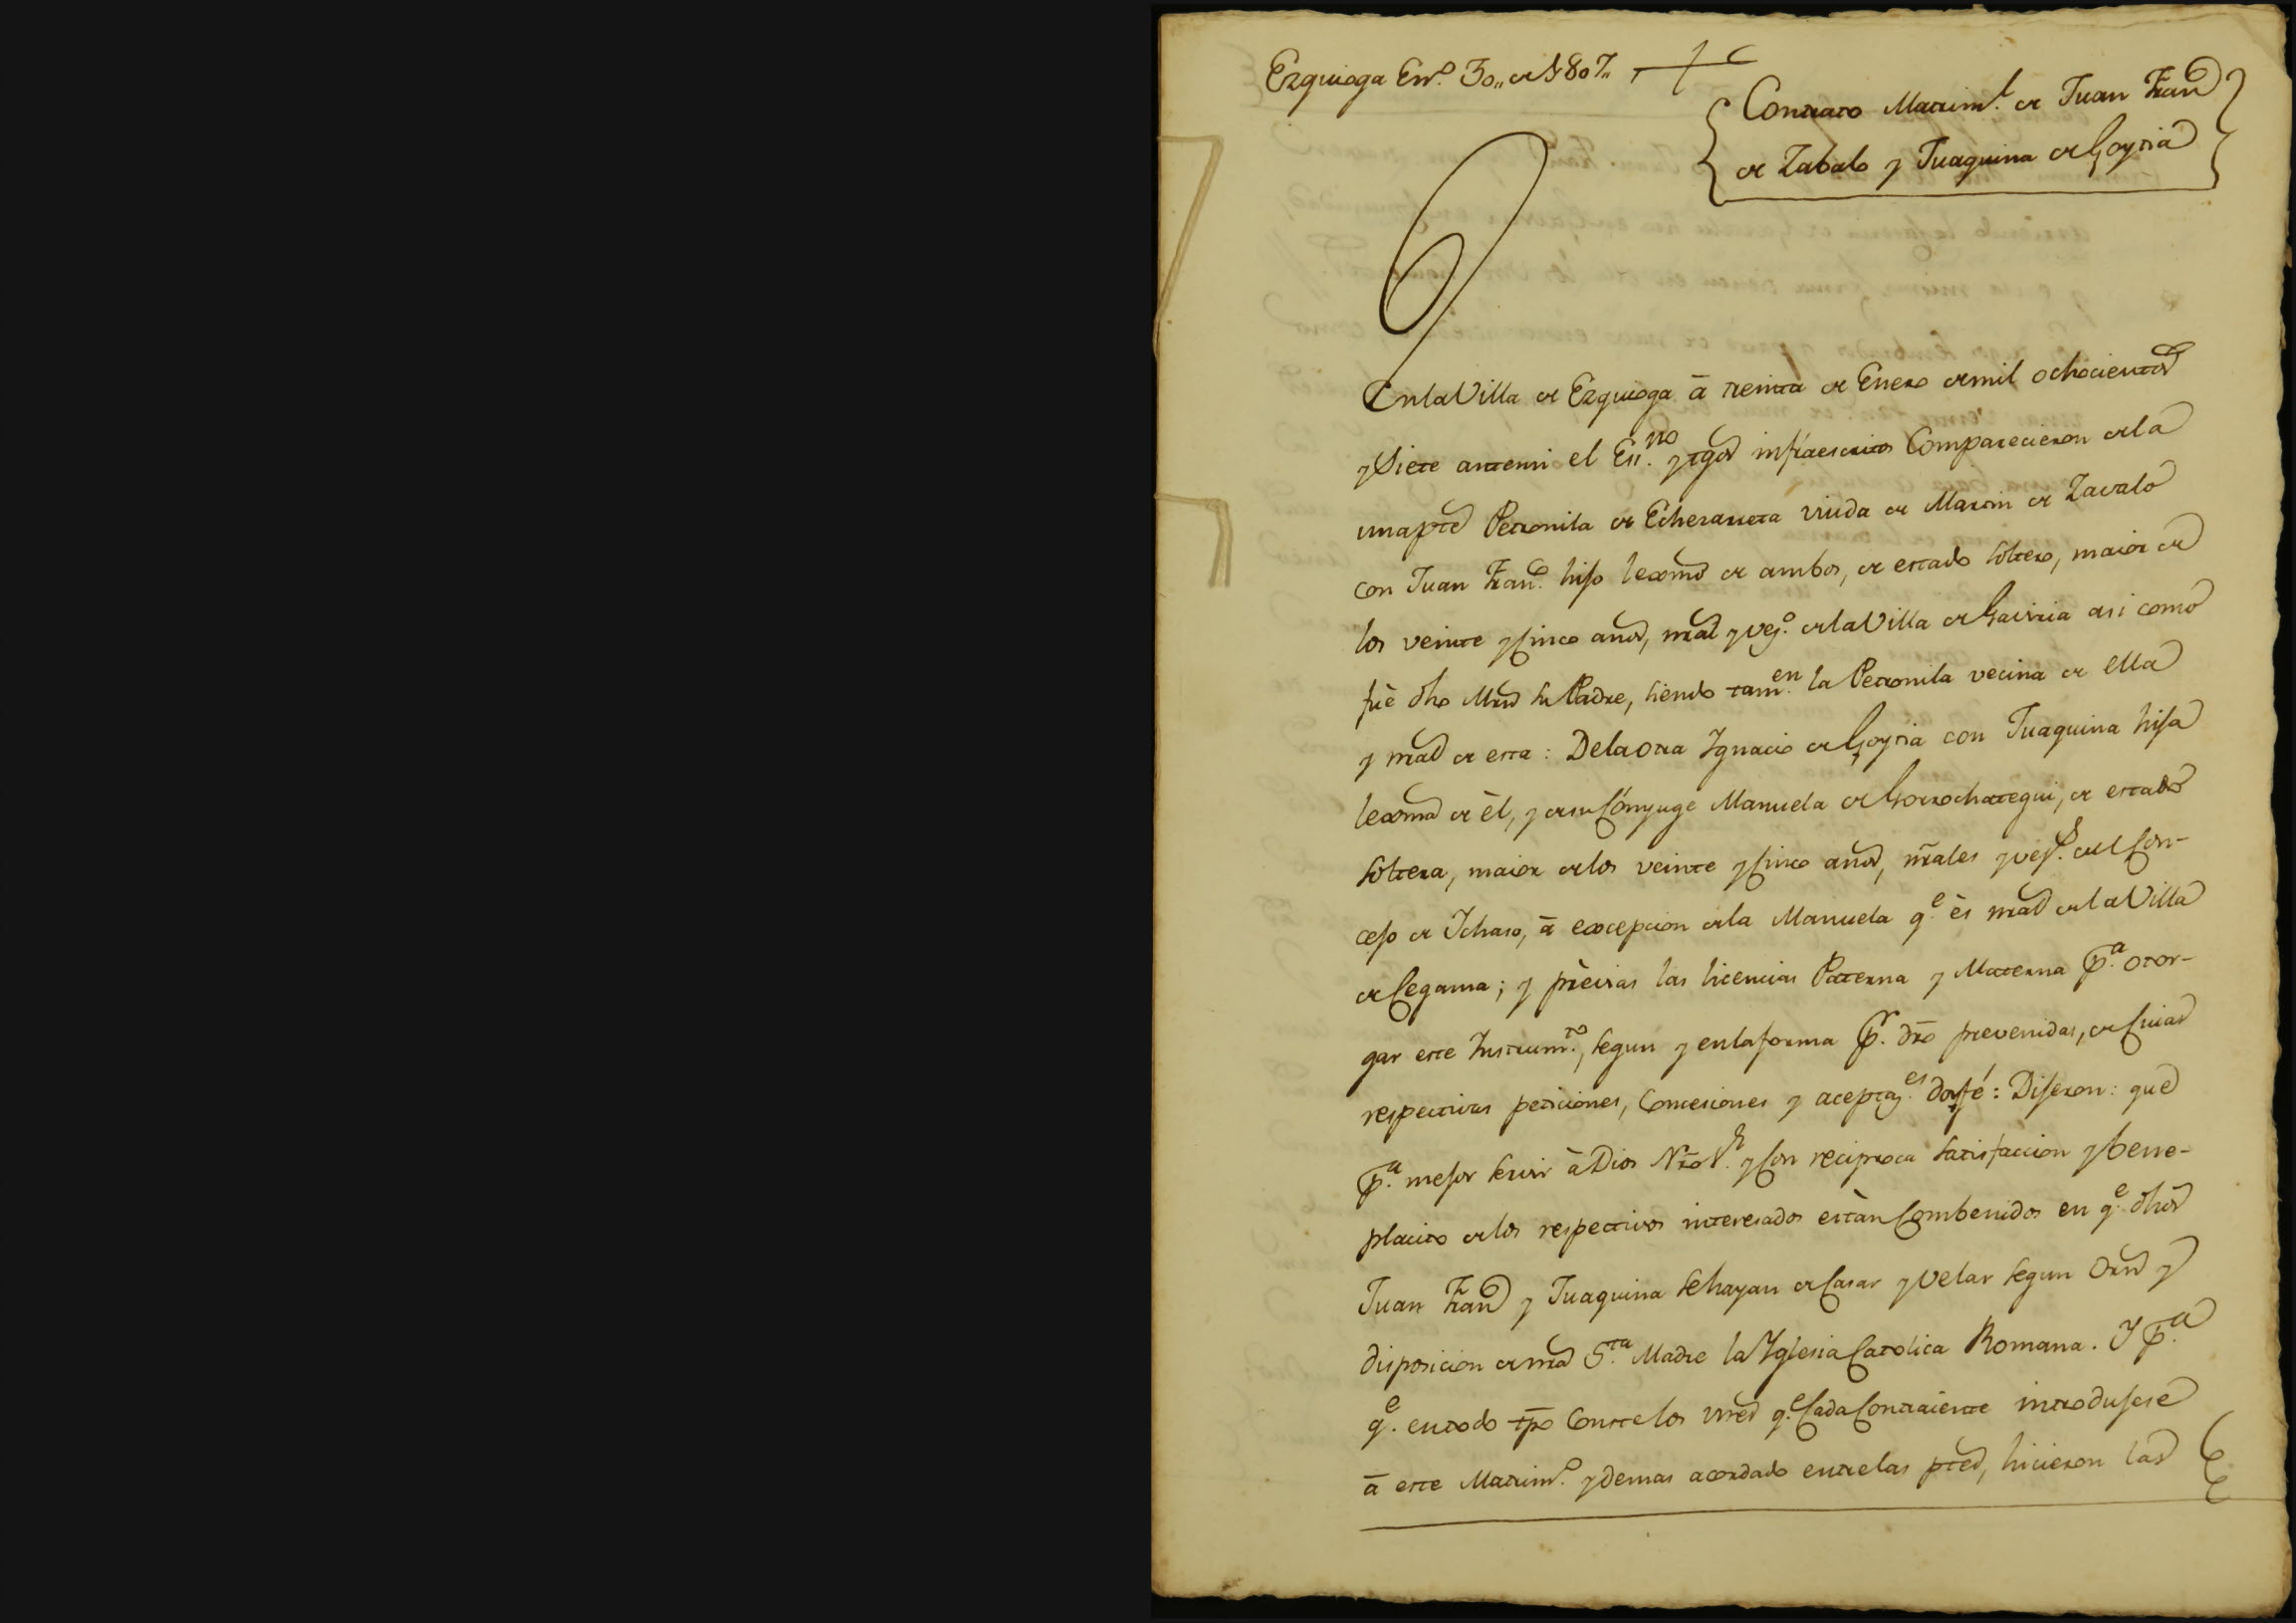 Ezquioga En.º 30,, de 1807,,
Contrato Matrim.l de Juan Fran.co
de Zabalo y Juaquina de Goytia
En la Villa de Ezquioga ā treinta de Enero de mil ochocientos
y Siete ante mi el Es.no y tgos infraescritos Comparecieron de la
una pte Petronila de Echezarreta viuda de Martin de Zavalo
con Juan Fran.co hijo lexmo de ambos, de estado soltero, maior de
los veinte y Cinco años, nrāl y vez.º de la Villa de Gaviria asi como
fuè dho Mrn su Padre, siendo tam.en la Petronila vecina de ella
y nrāl de esta: De la otra Ygnacio de Goytia con Juaquina hija
lexma de èl, y de su Cónyuge Manuela de Gorrochategui, de estado
soltera, maior de los veinte y Cinco años, nr̄ales y vez.s del Con-
cejo de Ichaso, ā excepcion de la Manuela q.e ès nrāl de la Villa
de Cegama; y prèvias las licencias Paterna y Materna p.a otor-
gar este Instrum.to, segun y en la forma p.r dr̄o prevenidas, de Cuias
respectivas peticiones, Concesiones y aceptaz.es doy fé: Dijeron: que
p.a mejor servir à Dios Nr̄o S.r y Con reciproca satisfaccion y bene-
placito de los respectivos interesados estàn Combenidos en q.e dhos
Juan Fran.co y Juaquina se hayan de Casar y Velar segun Orn y
disposicion de nra S.ta Madre la Yglesia Catolica Romana. Y p.a
q.e en todo tp̄o Conste los vnes q.e Cada Contraiente introdujere
ā este Matrim.º y demas acordado entre las ptes, hicieron las